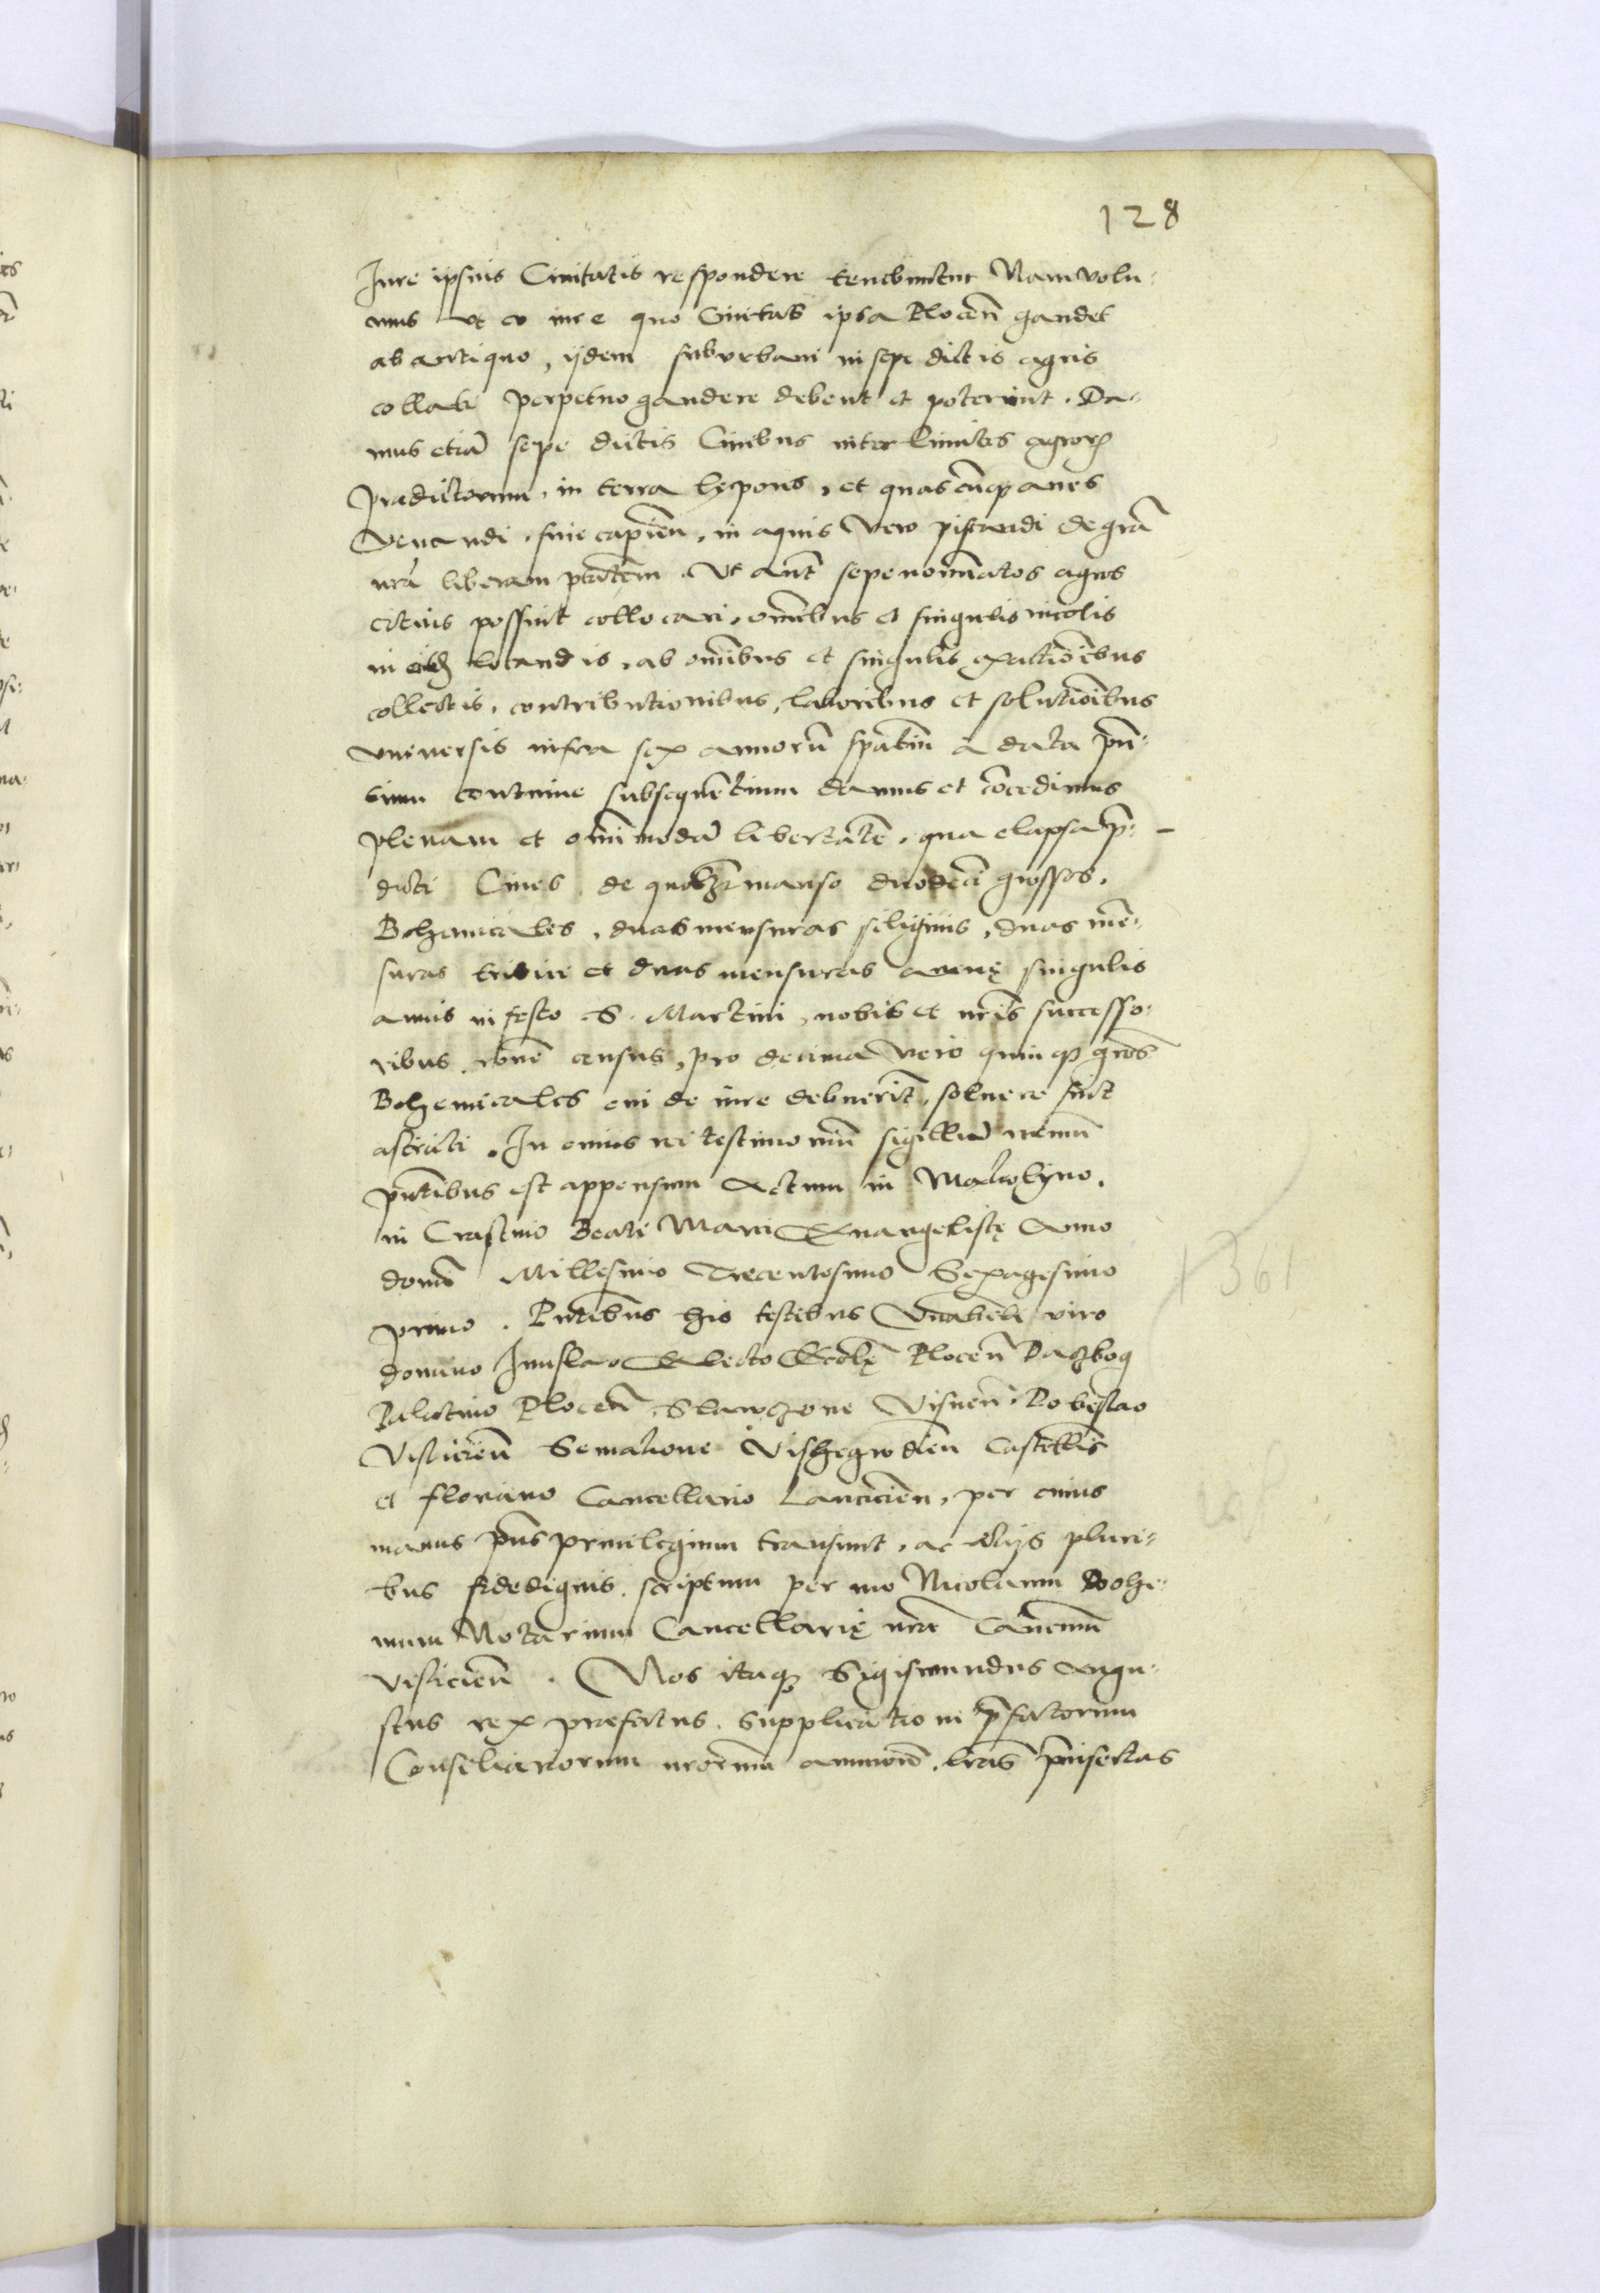 128
Iure ipsius Ciuitatis respondere tenebuntur Nam volu-
mus vt eo iure quo Ciuitas ipsa Plocen̄ gaudet
ab antiquo, ijdem suburbani in sepe dictis agris
collati perpetuo gaudere debent et poterunt. Da-
mus etiā sepe dictis Ciuibus inter limites agrorꝫ
pradictorum, in terra lepores, et quascūqꝫ aues
venandi, siue capien̄, in aquis vero piscandi de grā
nrā liberam ptātem. Vt aūt sepenominatos agros
citius possint collocari, omībus et singulis incolis
in eisdꝫ locandis, ab omībus et singulis exactioībus
collectis, contributionibus, laboribus et solutioībus
vniuersis infra sex annorū spatiū a data pn̄-
tium continue subsequētium damus et cōcedimus
plenam et omnimodā libertatē, qua elapsa p̄-
dicti Ciues de quolꝫt manso duodecī grossos,
Bohemicales, duas mensuras siliginis, duas mē-
suras tritici et duas mensuras auenę singulis
annis in festo S. Martini, nobis et nrīs successo-
ribus roñe census, pro decima vero quinqꝫ gros̄
Bohemicales cui de iure debuerīt, soluere sint
astricti. In cuius rei testimoniū sigillū nrūm
pn̄tibus est appensum Actum in Makolyno,
in Crastino Beati Marci Euangelistę Anno
domī Millesimo Trecentosimo Sexagesimo
primo. Pn̄tibus his testibus Vn̄abili viro
domino Imislao Electo Ecclię Plocen̄ Dadzbog
Palatino Plocen̄ Slawczone Visnen̄ Pobeslao
Visliczen̄ Semalione Vishegrodien̄ Castellīs
et Floriano Cancellario Lancicien̄, per cuius
manus pn̄s priuilegium transiuit, ac alijs pluri-
bus fidedignis, scriptum per me Nicolaum Bohe-
mum Notarium Cancellarię nrē Canonicū
Vislicien̄. Nos itaqꝫ Sigismundus Augu-
stus rex praefatus, supplicationi p̄fatorum
Consiliariorum nrorum annuen̄, lrās p̄insertas
1361